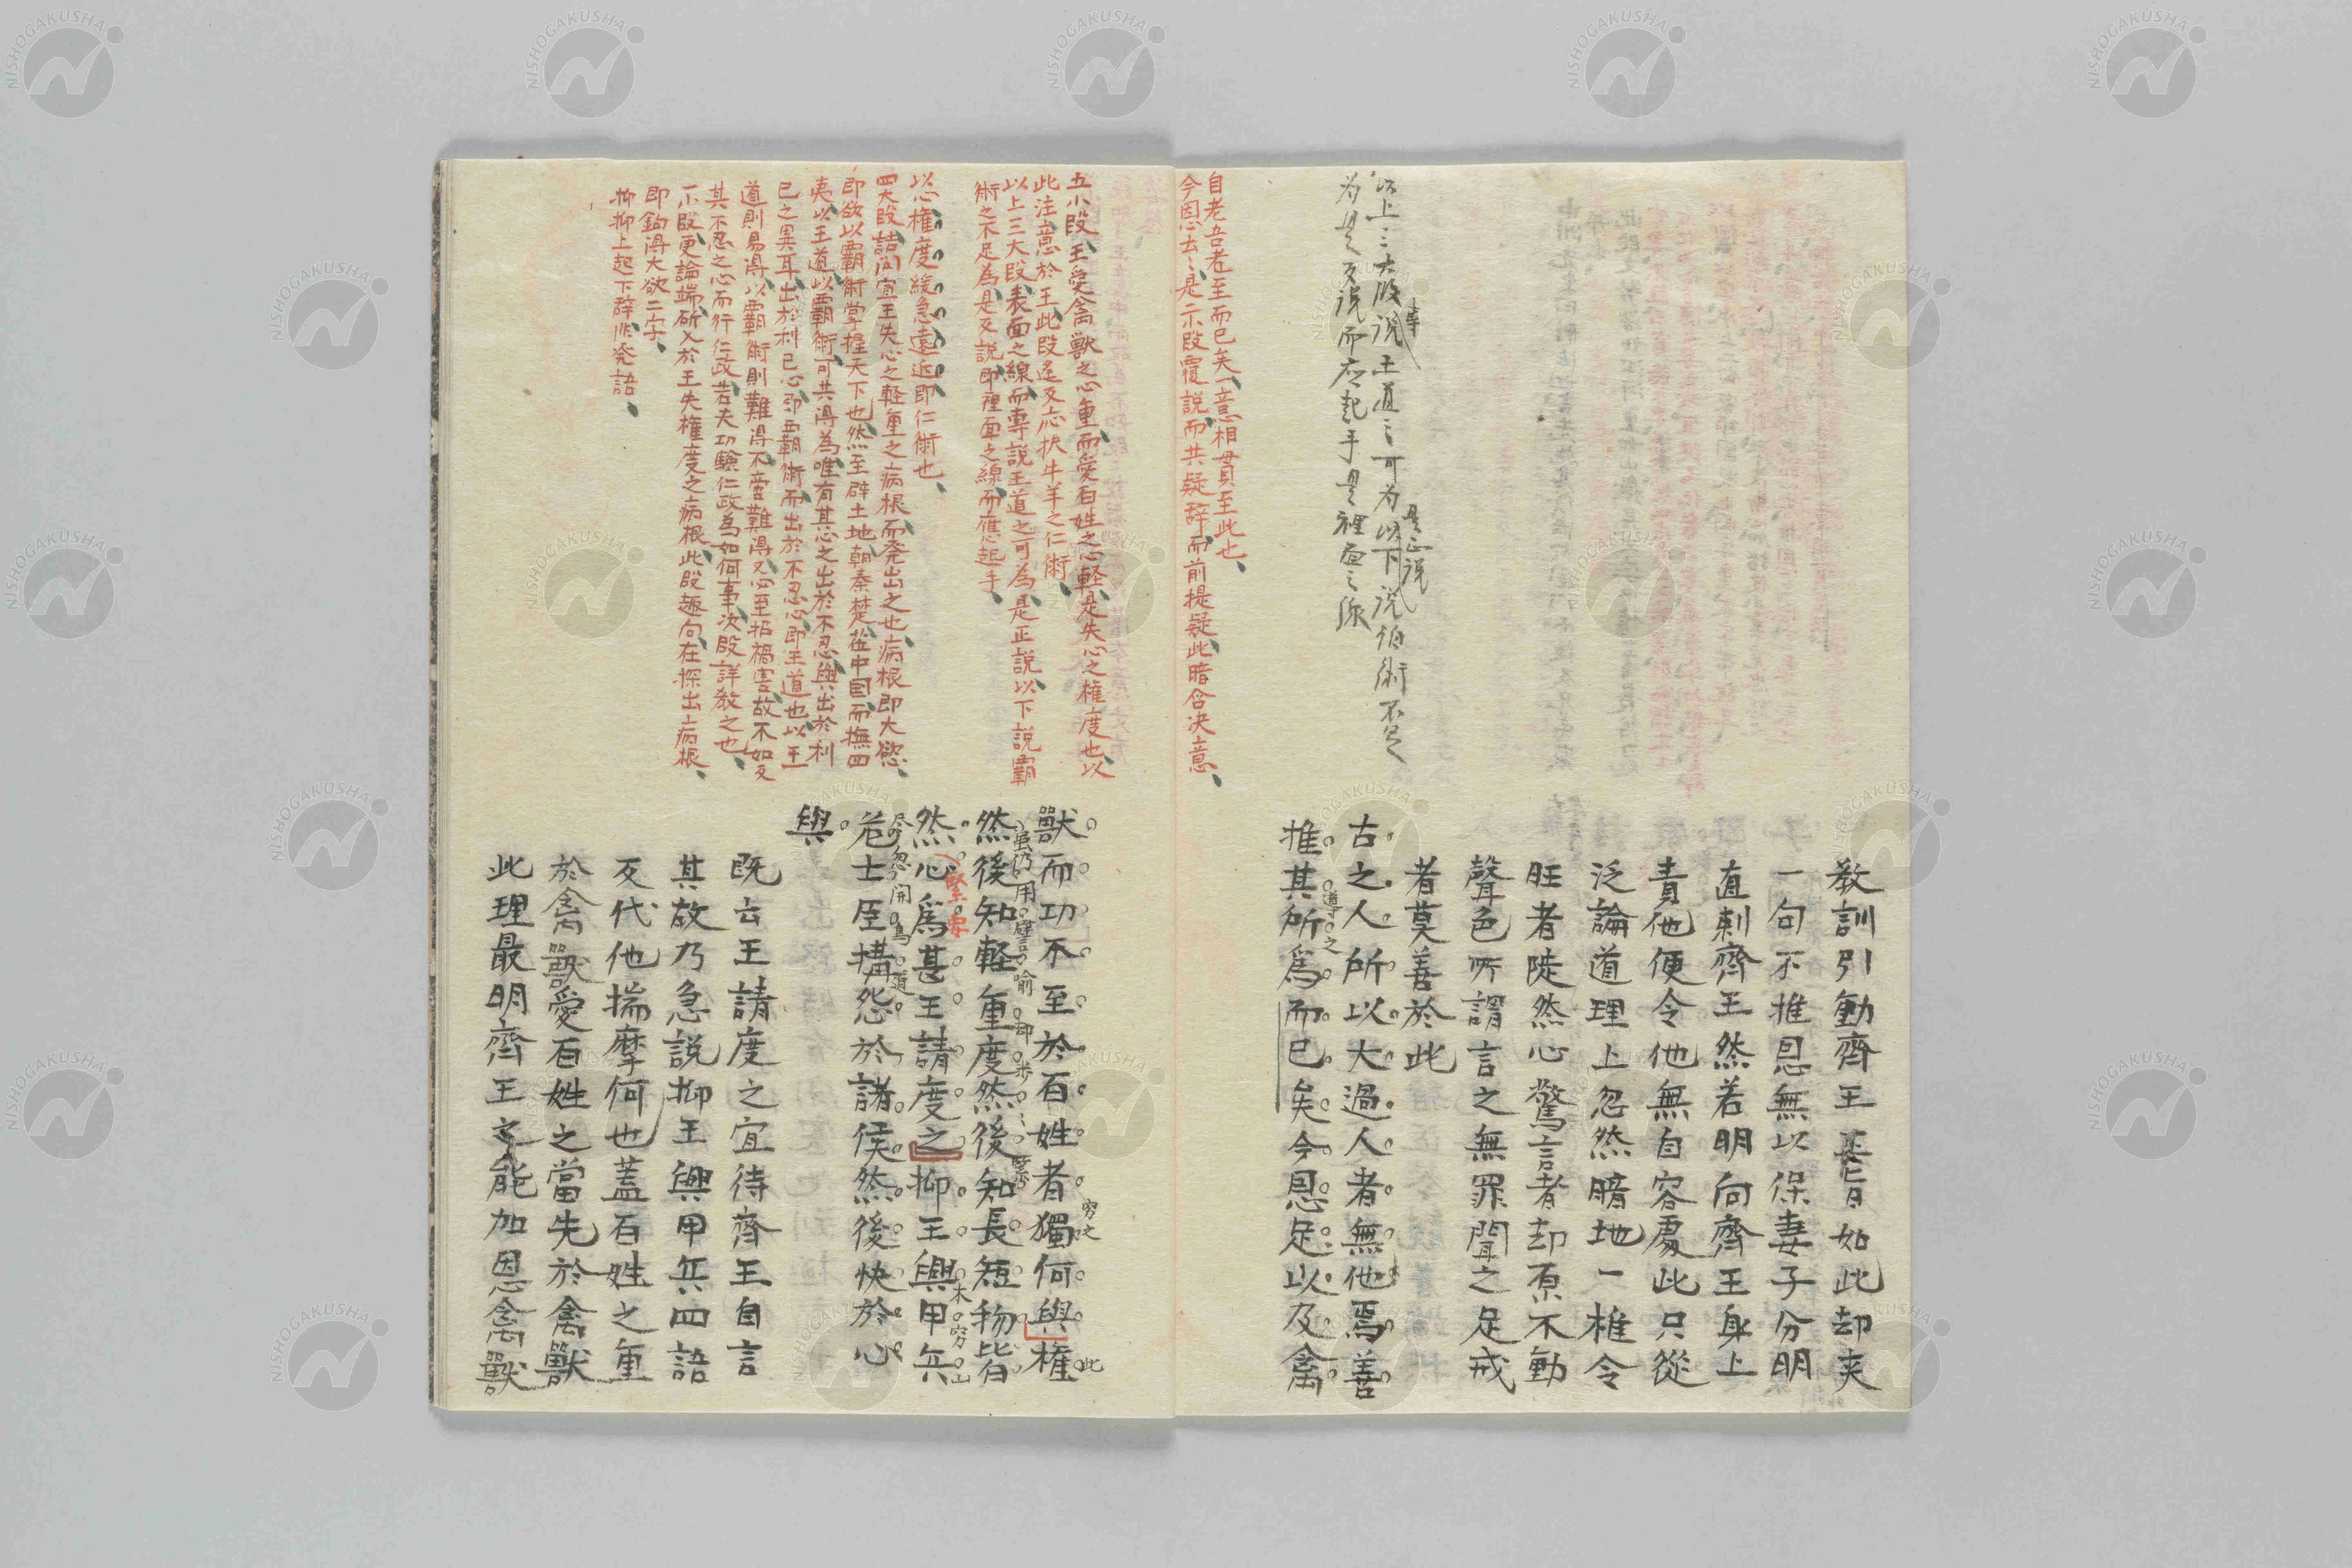 以上三大段説王道之可為以下説伯術不足
専
是正説
為是反説而応起手是裡面之線
自老吾老至而已矣一意相貫至此也
今因心去々是二小段覆説而共疑辞而前提疑此暗含决意
教訓引動齊王如此却夾
一句不推恩無以保妻子分明
直刺齊王然若明向齊王身上
責他便令他無自容處此只從
泛論道理上忽然暗地一椎令
旺者陡然心驚言者却原不動
聲色所謂言之無罪聞之足戒
者莫善於此
古之人所以大過人者無他焉善
推其所爲而已矣今恩足以及禽
導之
五小段王愛禽獸之心重而愛百姓之心軽是失心之権度也以
此注意於王此段遙反応扶牛羊之仁術
以上三大段表面之線而專説王道之可為是正説以下説霸
術之不足為是反説即裡面之線而應起手
以心権度緩急遠近即仁術也
四大段詰问宣王失心之軽重之病根而発出之也病根即大慾
即欲以霸術掌握天下也然至辟土地朝秦楚莅中国而撫四
夷以王道以霸術可共得為唯有其心之出於不忍與出於利
已之異耳出於利已心即霸術而出於不忍心即王道也以王
道則易得以霸術則難得不啻難得又必至招禍害故不如反
其不忍之心而行仁政若夫功驗仁政為如何事次段詳教之也
小段更論端斫入於王失権度之病根此段趣向在探出病根
即鈎得大欲二字
抑抑上起下辞非発語
獸而功不至於百姓者獨何與權
然後知軽重度然後知長短物皆
然心爲甚王請度之抑王興甲兵
危士臣構怨於諸侯然後快於心
與
窮之
此
虽仍用譬喻却步々緊
緊要
木窮山
尽忽開鳥道
既云王請度之宜待齊王自言
其故乃急説抑王興甲兵四語
反代他揣摩何也蓋百姓之重
於禽獸愛百姓之當先於禽獸
此理最明齊王能加恩禽獸